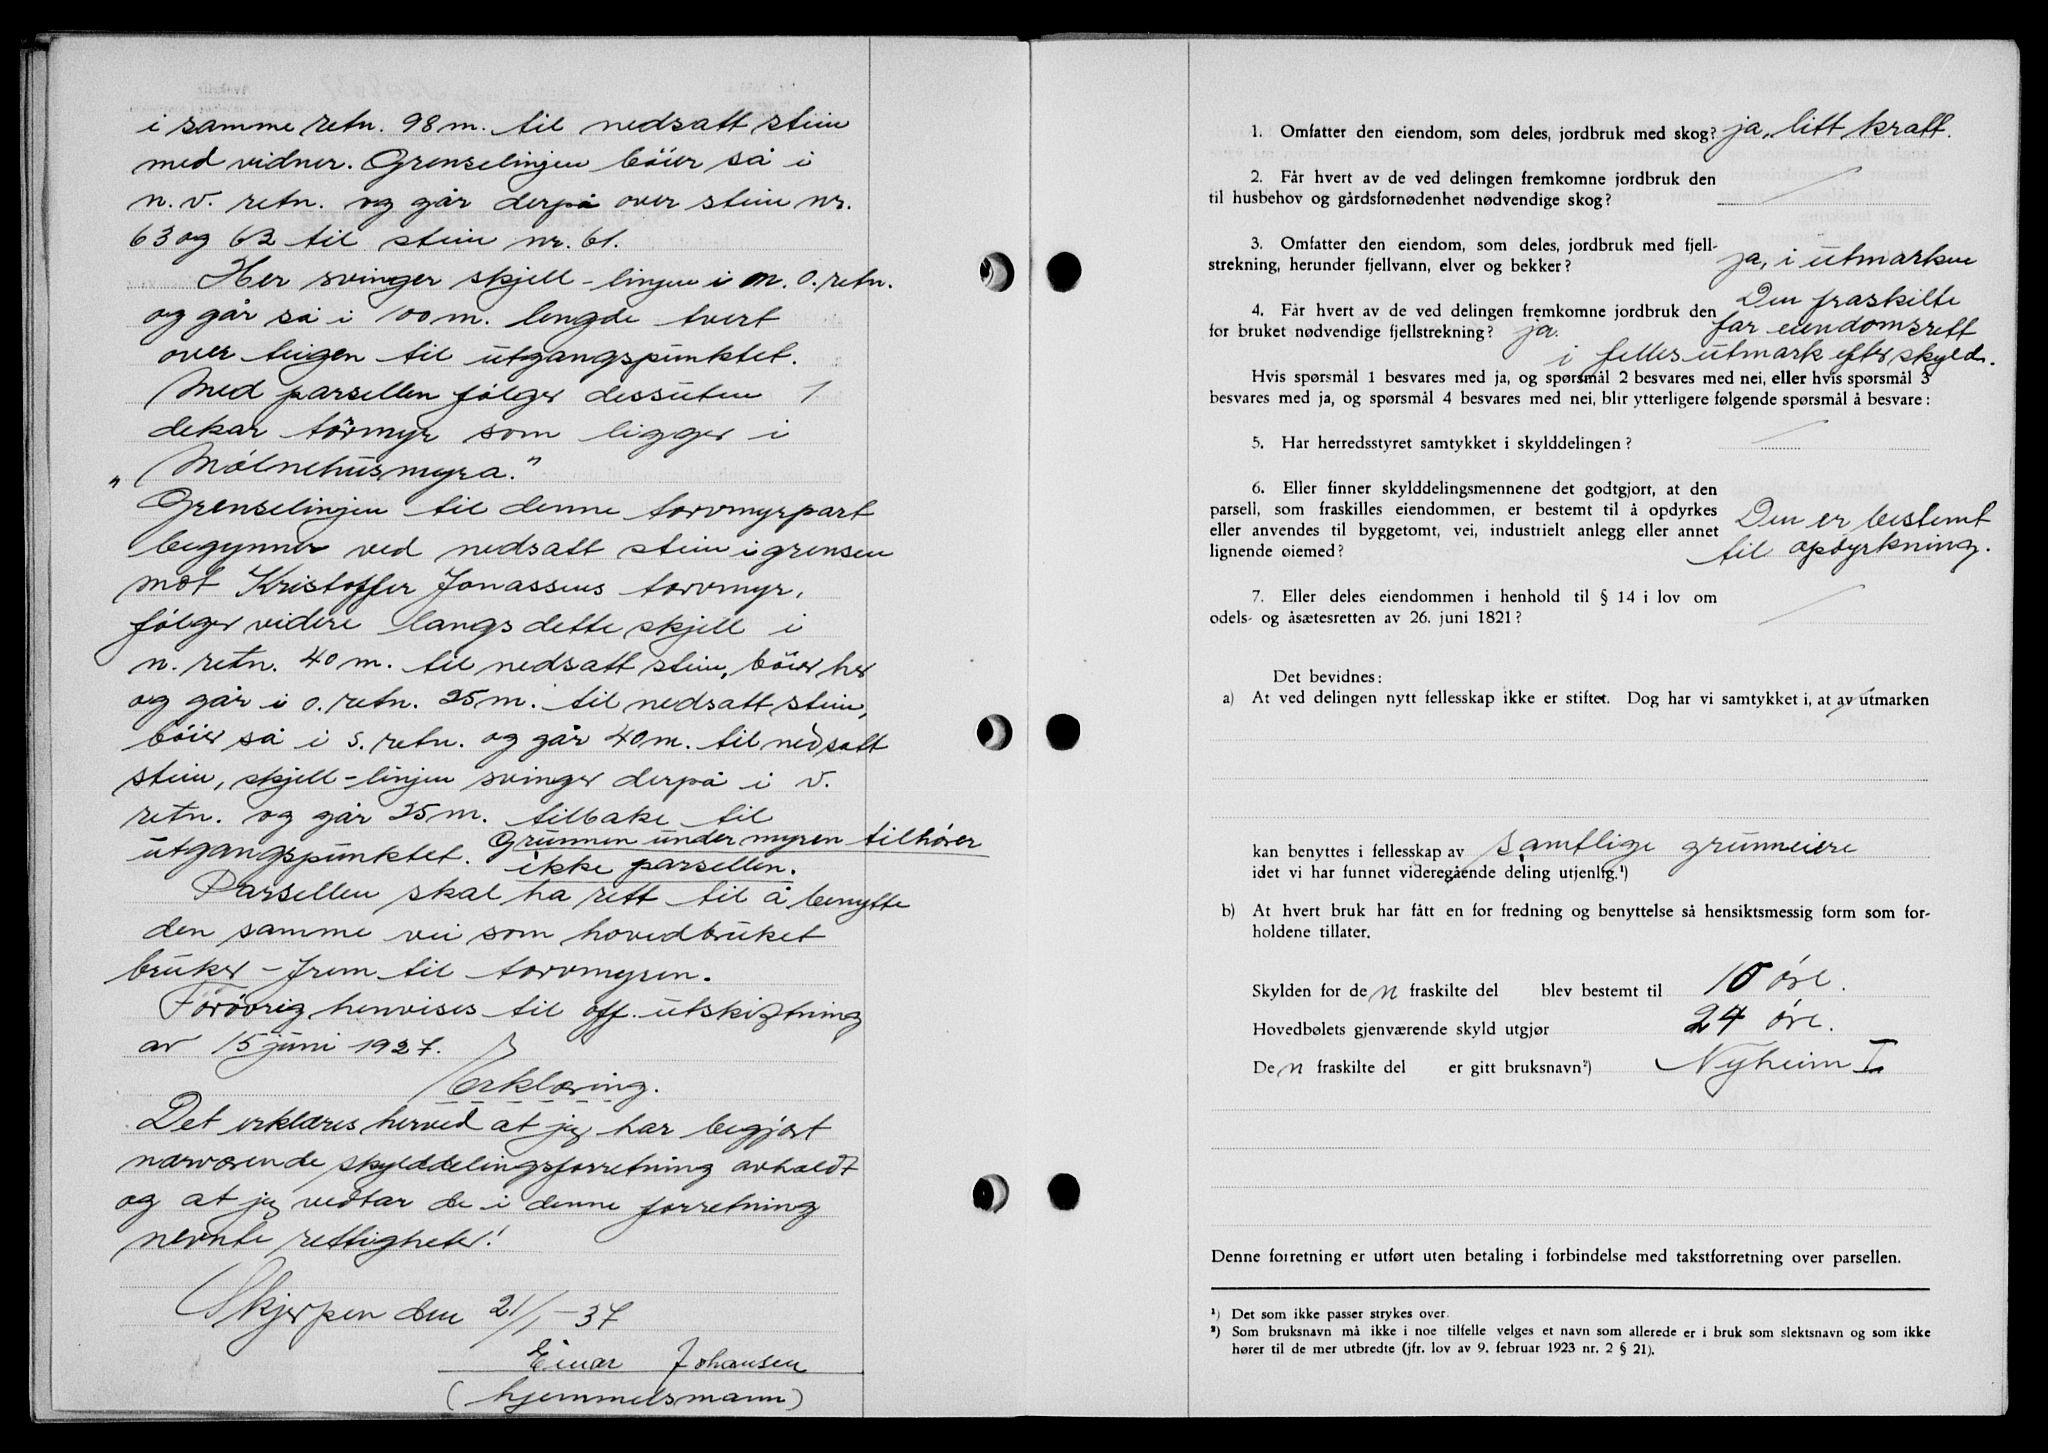 i samme retn. 98 m. til nedsatt stein
med vidner. Grenselinjen böier så i
n. v. retn. og går derpå over stein nr.
63 og 62 til stein nr. 61.
Her svinger skjell-linjen i n. o. retn.
og går så i 100 m. lengde tvert
over teigen til utgangspunktet.
Med parsellen følger dessuten 1
dekar törmyr som ligger i
"Mølnehusmyra."
Grenselinjen til denne torvmyrpart
begynner ved nedsatt stein i grensen
mot Kristoffer Jonassens torvmyr,
følger videre langs dette skjell i
n. retn. 40 m. til nedsatt stein, böier her
og går i o. retn. 25 m. til nedsatt stein,
böier så i s. retn. og går 40 m. til nedsatt
stein, skjell-linjen svinger derpå i v.
retn. og går 25 m. tilbake til
utgangspunktet. Grunnen under myren tilhører
ikke parsellen.
Parsellen skal ha rett til å benytte
den samme vei som hovedbruket
bruker - frem til torvmyren.
Forövrig henvises til off. utskiftning
av 15 juni 1927.
Erklæring.
Det erklæres herved at jeg har begjært
nærværende skylddelingsforretning avholdt
og at jeg vedtar de i denne forretning
nevnte rettigheter!
Skjerpen den 21/1-37
Einar Johansen
(hjemmelsmann)
1. Omfatter den eiendom, som deles, jordbruk med skog? ja, litt kratt.
2. Får hvert av de ved delingen fremkomne jordbruk den
til husbehov og gårdsfornødenhet nødvendige skog?
3. Omfatter den eiendom, som deles, jordbruk med fjell-
strekning, herunder fjellvann, elver og bekker? ja, i utmarken
4. Får hvert av de ved delingen fremkomne jordbruk den Den fraskilte
for bruket nødvendige fjellstrekning? ja. får eiendomsrett
i felles utmark efter skyld.
Hvis spørsmål 1 besvares med ja, og spørsmål 2 besvares med nei, eller hvis spørsmål 3
besvares med ja, og spørsmål 4 besvares med nei, blir ytterligere følgende spørsmål å besvare:
5. Har herredsstyret samtykket i skylddelingen?
6. Eller finner skylddelingsmennene det godtgjort, at den
parsell, som fraskilles eiendommen, er bestemt til å opdyrkes
eller anvendes til byggetomt, vei, industrielt anlegg eller annet Den er bestemt
lignende øiemed? til opdyrkning.
7. Eller deles eiendommen i henhold til § 14 i lov om
odels- og åsætesretten av 26. juni 1821?
Det bevidnes:
a) At ved delingen nytt fellesskap ikke er stiftet. Dog har vi samtykket i, at av utmarken
kan benyttes i fellesskap av samtlige grunneiere
idet vi har funnet videregående deling utjenlig.¹)
b) At hvert bruk har fått en for fredning og benyttelse så hensiktsmessig form som for-
holdene tillater.
Skylden for de n fraskilte del blev bestemt til 10 øre.
Hovedbølets gjenværende skyld utgjør 24 øre.
De n fraskilte del er gitt bruksnavn²) Nyheim I
Denne forretning er utført uten betaling i forbindelse med takstforretning over parsellen.
¹) Det som ikke passer strykes over.
²) Som bruksnavn må ikke i noe tilfelle velges et navn som allerede er i bruk som slektsnavn og som ikke
hører til de mer utbredte (jfr. lov av 9. februar 1923 nr. 2 § 21).